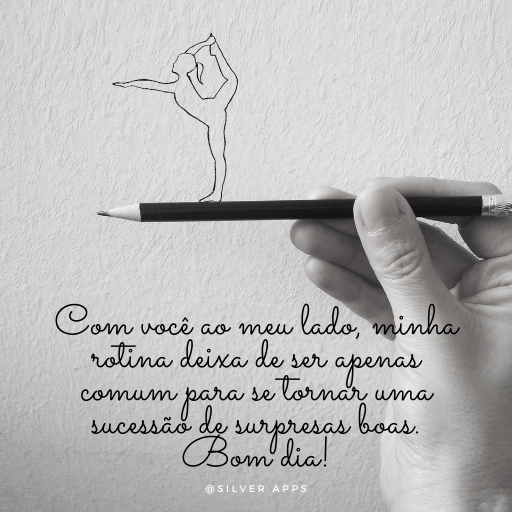 Com você ao meu lado, minha
rotina deixa de ser apenas
comum para se tornar uma
sucessão de surpresas boas.
Bom dia!
@SILVER APPS